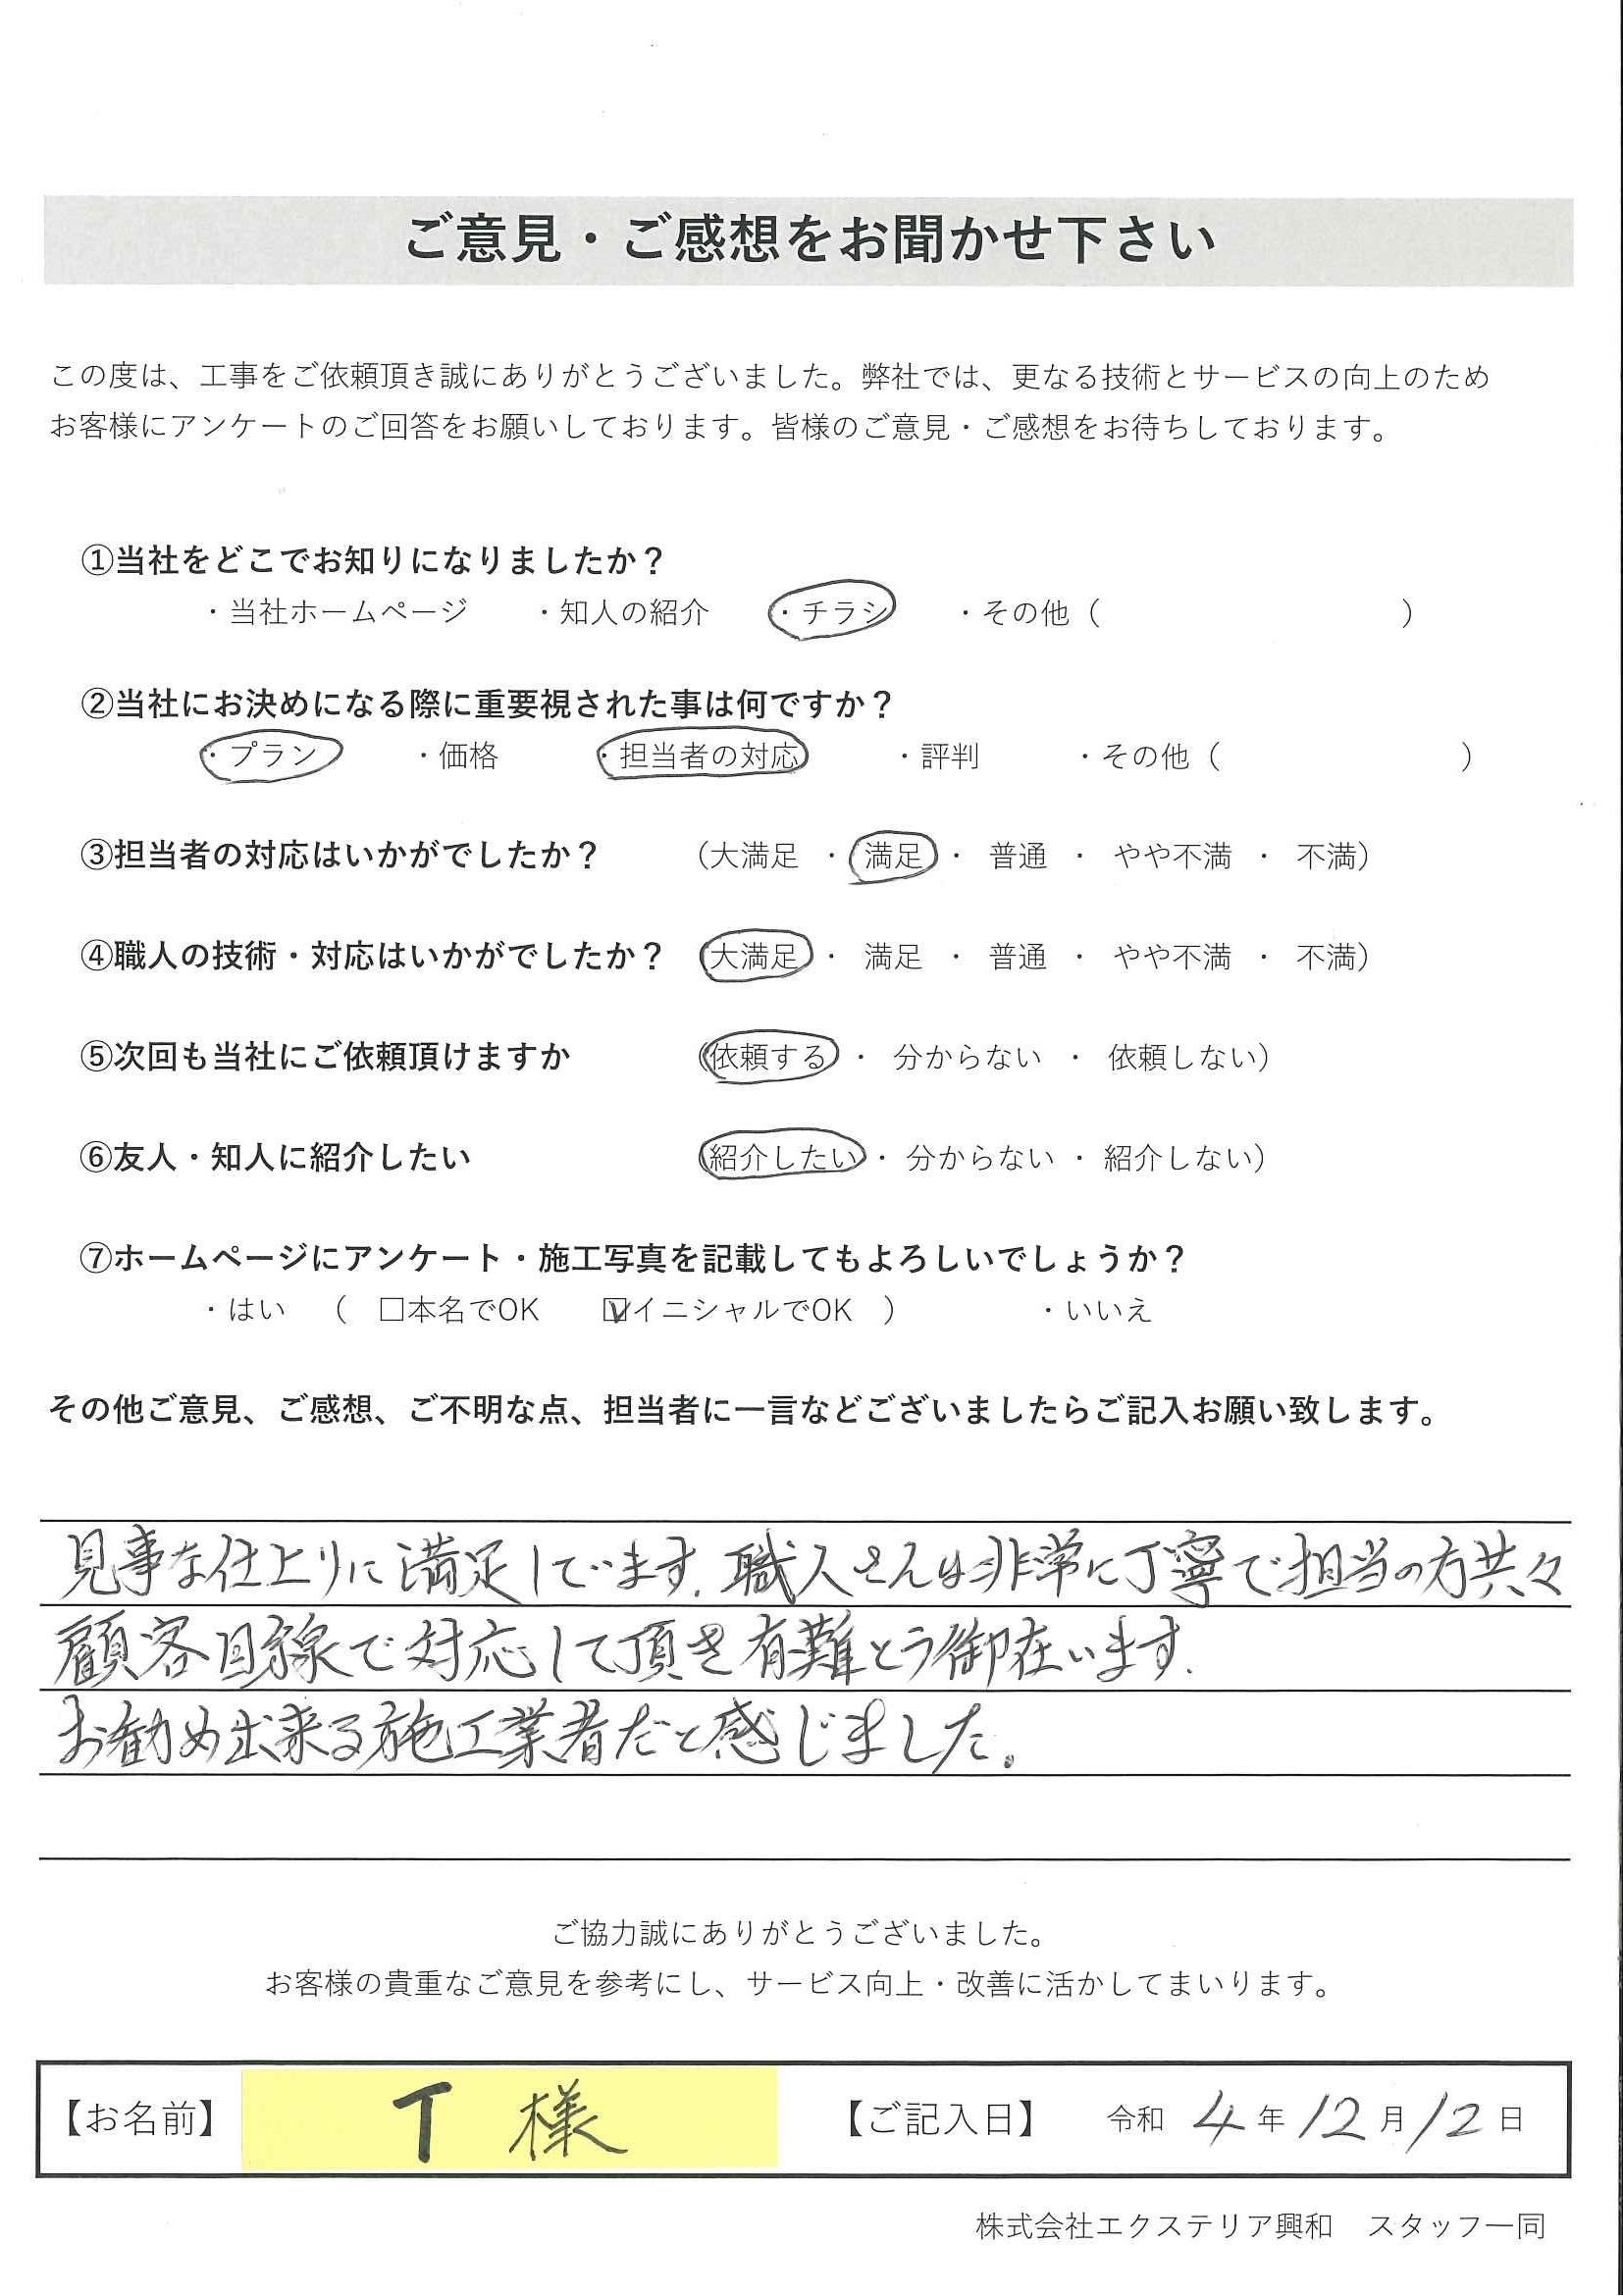 ご意見・ご感想をお聞かせ下さい
この度は、工事をご依頼頂き誠にありがとうございました。弊社では、更なる技術とサービスの向上のため
お客様にアンケートのご回答をお願いしております。皆様のご意見・ご感想をお待ちしております。
①当社をどこでお知りになりましたか？
・当社ホームページ ・知人の紹介 ・チラシ ・その他（ ）
②当社にお決めになる際に重要視された事は何ですか？
・プラン ・価格 ・担当者の対応 ・評判 ・その他（ ）
③担当者の対応はいかがでしたか？ （大満足 ・ 満足 ・ 普通 ・ やや不満 ・ 不満）
④職人の技術・対応はいかがでしたか？ （大満足 ・ 満足 ・ 普通 ・ やや不満 ・ 不満）
⑤次回も当社にご依頼頂けますか （依頼する ・ 分からない ・ 依頼しない）
⑥友人・知人に紹介したい （紹介したい ・ 分からない ・ 紹介しない）
⑦ホームページにアンケート・施工写真を記載してもよろしいでしょうか？
・はい （ □本名でOK ☑イニシャルでOK ） ・いいえ
その他ご意見、ご感想、ご不明な点、担当者に一言などございましたらご記入お願い致します。
見事な仕上りに満足しています. 職人さんは非常に丁寧で担当の方共々
顧客目線で対応して頂き有難とう御在います.
お勧め出来る施工業者だと感じました。
ご協力誠にありがとうございました。
お客様の貴重なご意見を参考にし、サービス向上・改善に活かしてまいります。
【お名前】 T 様 【ご記入日】 令和 4 年 12 月 12 日
株式会社エクステリア興和 スタッフ一同